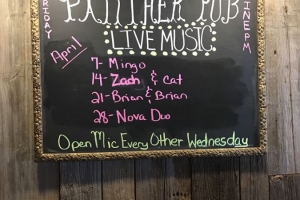 PANTHER PUB
LIVE MUSIC
FRIDAY
NINE PM
April
7- Mingo
14- Zach & Cat
21- Brian & Brian
28- Nova Duo
Open Mic Every Other Wednesday